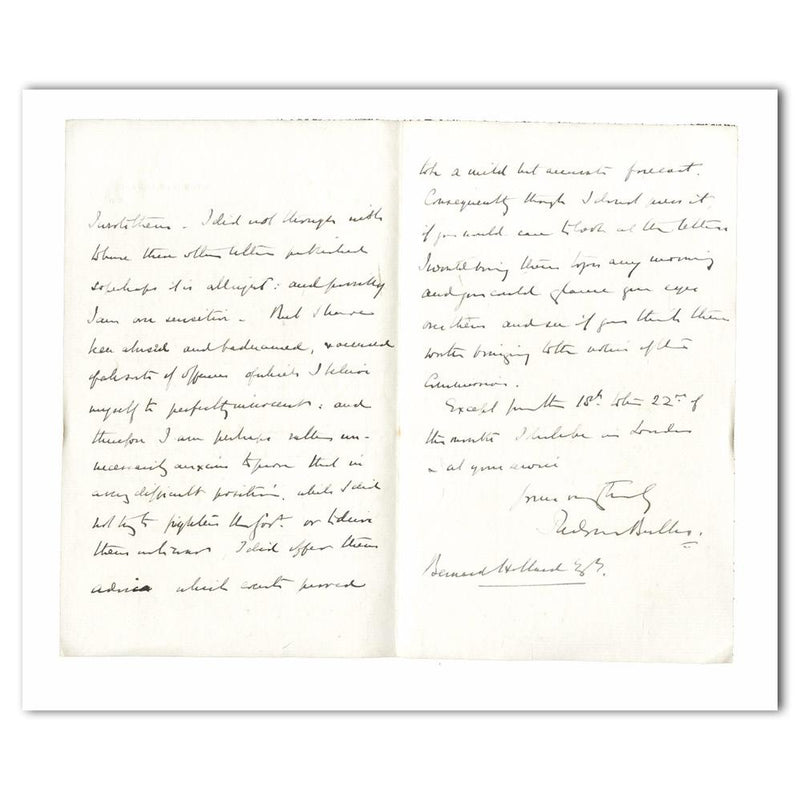 I wrote them. I did not though wish
to have these other letters published
so perhaps it is all right: and possibly
I am over sensitive. But I have
been abused and badnamed, & accused
of all sorts of offences of which I believe
myself to be perfectly innocent: and
therefore I am perhaps rather un-
necessarily anxious to prove that in
a very difficult position, while I did
not try to frighten the Govt. or to drive
them into war, I did offer them
advice which events proved
to be a mild but accurate forecast.
Consequently though I do not press it
if you would care to look at the letters
I would bring them to you any morning
and you could glance your eyes
over them and see if you think them
worth bringing to the notice of the
Commission.
Except from the 18th to the 22nd of
this month I shall be in London
& at your service
Yours very truly
Redvers Buller.
Bernard Holland Esq.